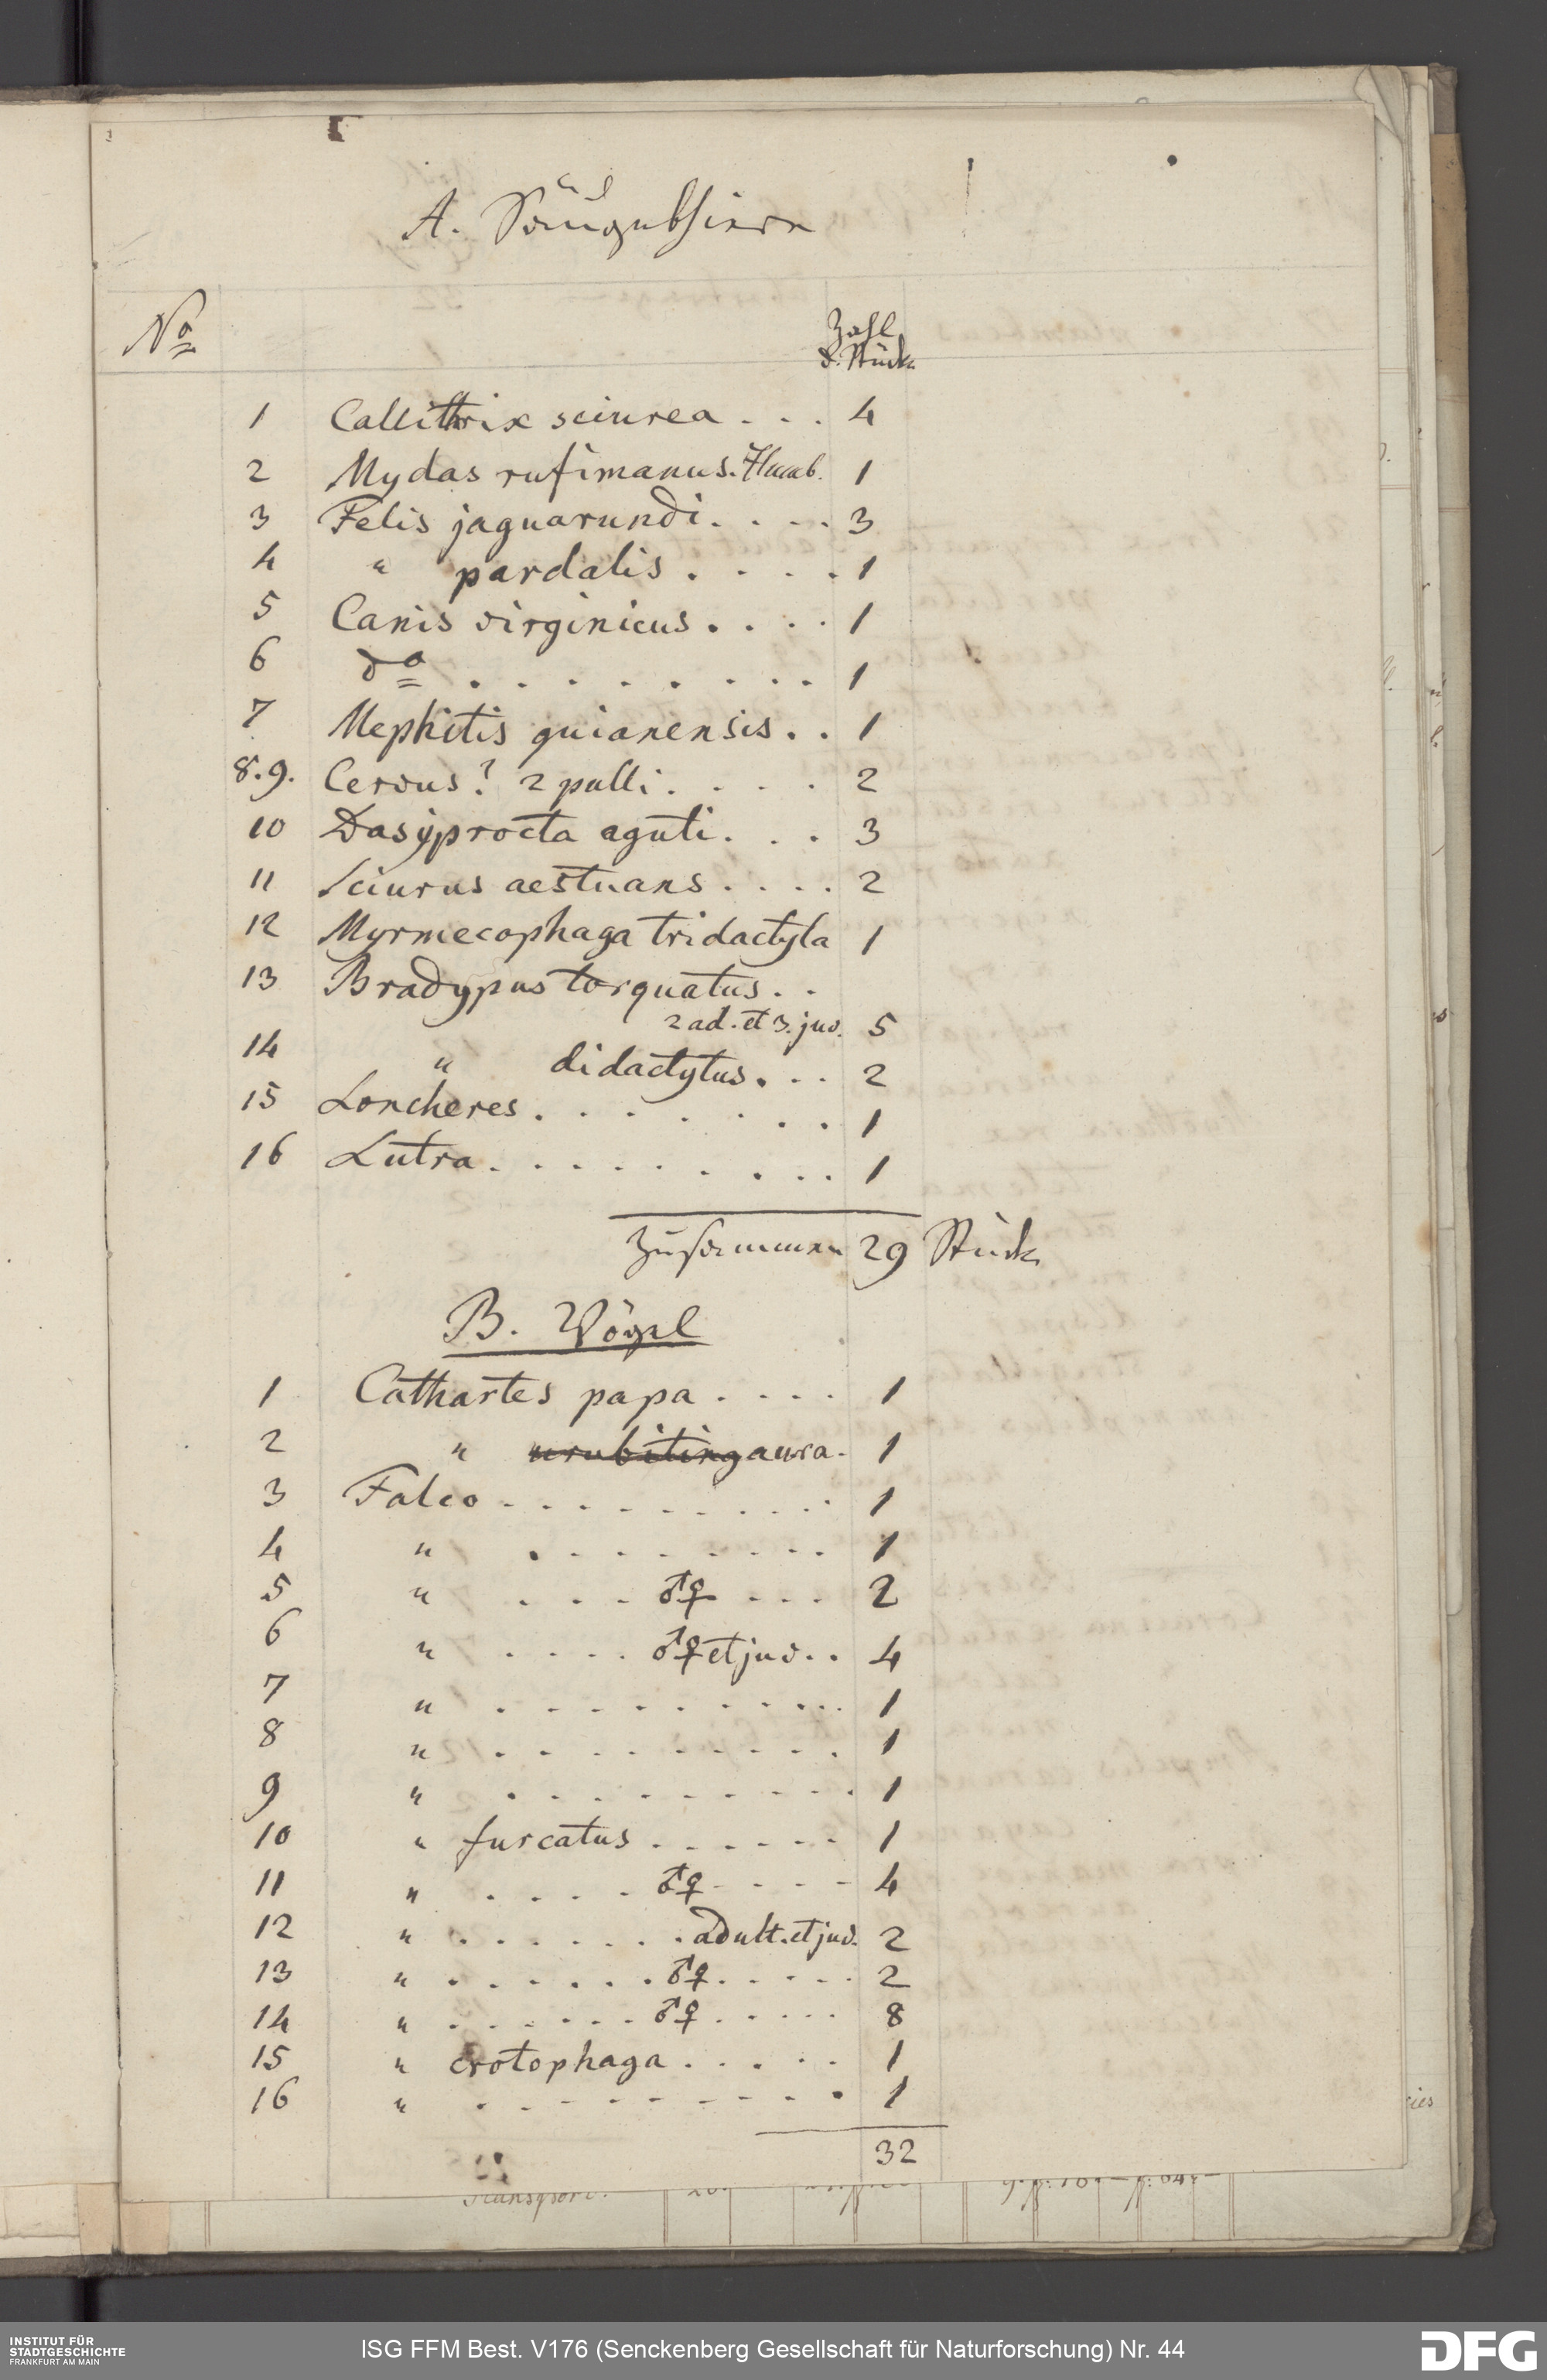 A. Säugethiere
No
Zahl
d. Stücke
1 Callithrix sciurea . . . 4
2 Mydas rufimanus. Humb. 1
3 Felis jaguarundi . . . . 3
4 " pardalis . . . . 1
5 Canis virginicus . . . . 1
6 do . . . . . . . . 1
7 Mephitis guianensis . . 1
8.9. Cervus? 2 pulli . . . . 2
10 Dasyprocta aguti . . . 3
11 Sciurus aestuans . . . . 2
12 Myrmecophaga tridactyla 1
13 Bradypus torquatus . .
2 ad. et 3. juv. 5
14 " didactylus . . . 2
15 Loncheres . . . . . . . 1
16 Lutra . . . . . . . . 1
Zusammen 29 Stück
B. Vögel
1 Cathartes papa . . . . 1
2 " urubiting aura . 1
3 Falco . . . . . . . . . 1
4 " . . . . . . . . 1
5 " . . . ♂♀ . . . 2
6 " . . . . ♂♀ et juv. . 4
7 " . . . . . . . . . . 1
8 " . . . . . . . . . 1
9 " . . . . . . . . . 1
10 " furcatus . . . . . . 1
11 " . . . . ♂♀ . . . . 4
12 " . . . . . . . adult. et juv. 2
13 " . . . . . . ♂♀ . . . . . 2
14 " . . . . . . ♂♀ . . . . . 8
15 " crotophaga . . . . . 1
16 " . . . . . . . . . . 1
32
Transport.
INSTITUT FÜR
STADTGESCHICHTE
FRANKFURT AM MAIN
ISG FFM Best. V176 (Senckenberg Gesellschaft für Naturforschung) Nr. 44
DFG